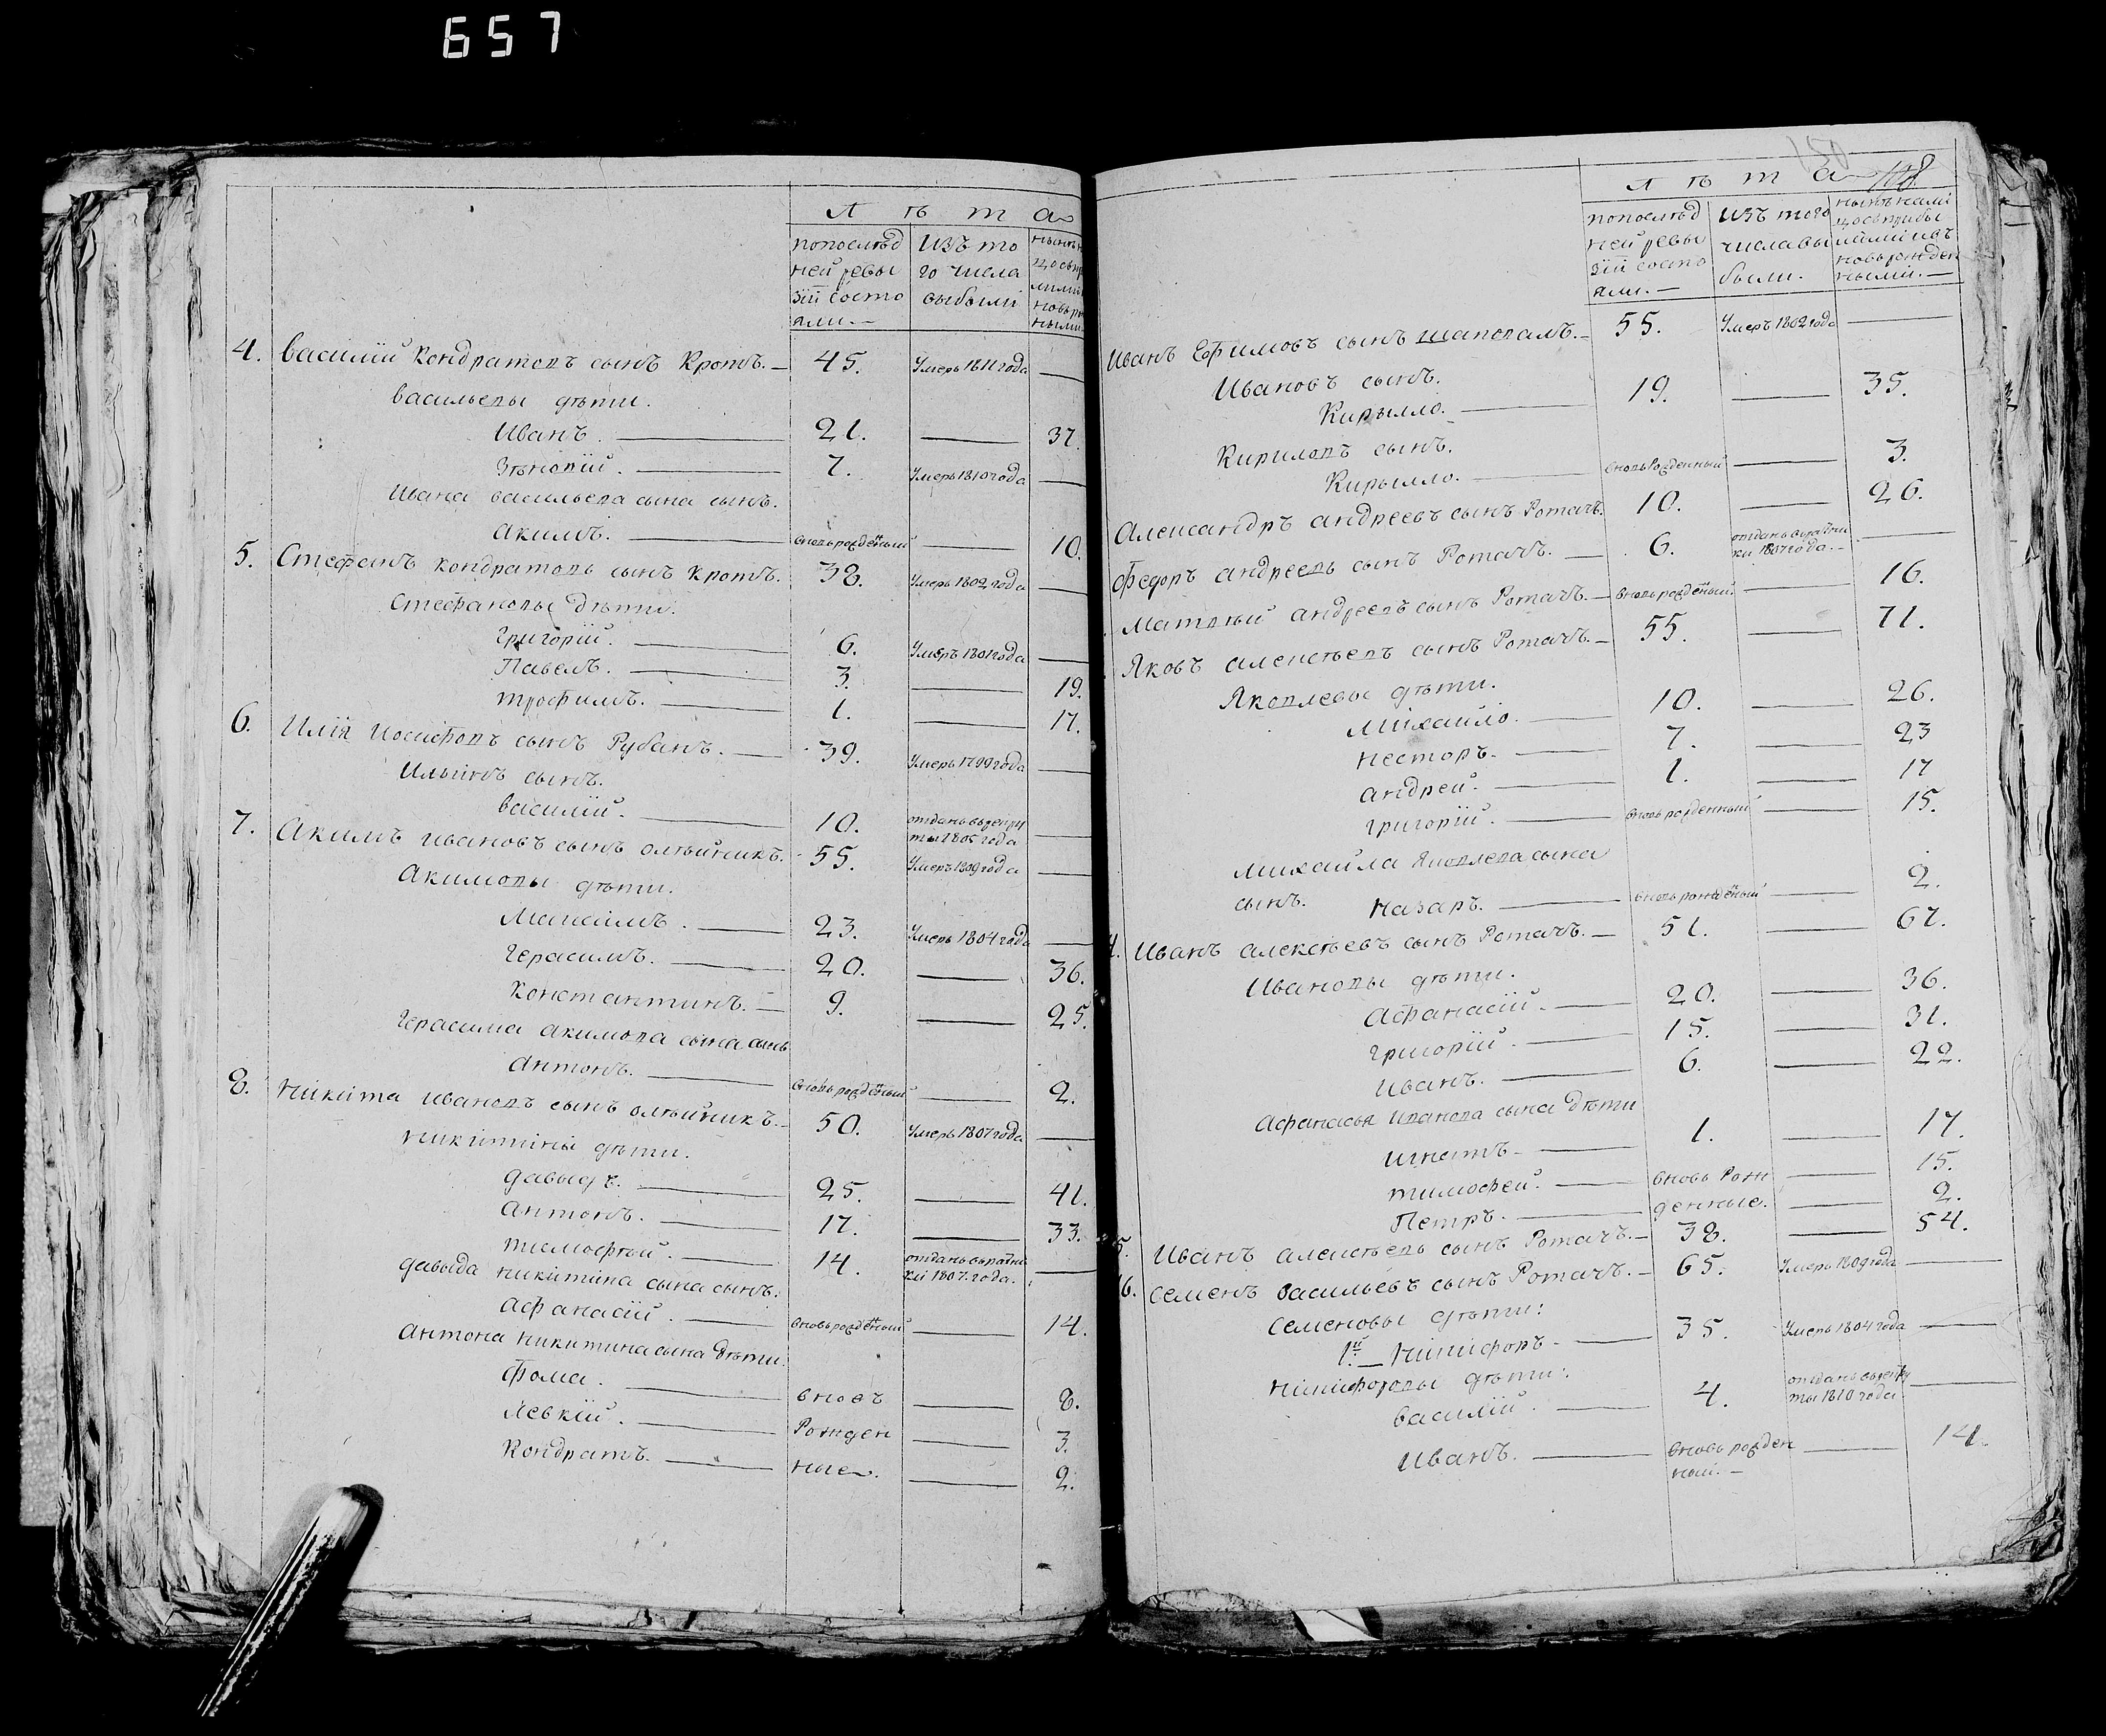 657
Л ѣ т а
попослѣд ней ревы зіи состо яли.—
изъ то го числа выбыли
4. Василій Кондратовъ сынъ Кротъ.— 45. Умеръ 1811 года —
Васильевы дѣти.
Иванъ. — 21. — 37.
Зѣновій. — 7. Умеръ 1810 года —
Ивана Васильева сына сынъ.
Акимъ. — вновь рожденый — 10.
5. Стефанъ Кондратовъ сынъ Кротъ. 38. Умеръ 1802 года —
Стефановы дѣти.
Григорій. — 6. Умеръ 1801 года —
Павелъ. — 3. — 19.
Трофимъ. — 1. — 17.
6. Илія Иосифовъ сынъ Рубанъ. — 39. Умеръ 1799 года —
Ильинъ сынъ.
Василій. — 10. отданъ въ рекру ты 1805 года —
7. Акимъ Ивановъ сынъ Олѣйникъ. 55. Умеръ 1809 года —
Акимовы дѣти.
Максимъ. — 23. Умеръ 1804 года —
Герасимъ. — 20. — 36.
Константинъ. — 9. — 25.
Герасима Акимова сына сынъ
Антонъ. — вновь рожденый — 2.
8. Никита Ивановъ сынъ Олѣйникъ.— 50. Умеръ 1807 года —
Никитины дѣти.
Давыдъ. — 25. — 41.
Антонъ. — 17. — 33.
Тимофѣй. — 14. отданъ въ ратни ки 1807. года. —
Давыда Никитина сына сынъ.
Афанасій. — вновь рожденый — 14.
Антона Никитина сына дѣти.
Фома. — вновъ — 8.
Левкій. — Рожден — 3.
Кондратъ. — ные. — 2.
Л ѣ т а 108
попослѣд ней ревы зіи состо яли.—
изъ того числа вы были.
нынѣ нали цо съ прибы лыми и въ новь рожден ными.—
Иванъ Ефимовъ сынъ Шаповалъ.— 55. Умеръ 1802 года —
Ивановъ сынъ.
Кирылло. — 19. — 35.
Кириловъ сынъ.
Кирылло. — вновь Рожденный — 3.
Александръ Андреевъ сынъ Ротачъ. 10. — 26.
Федоръ Андреевъ сынъ Ротачъ. — 6. отданъ въ ратни ки 1807 года.— —
Матвѣй Андреевъ сынъ Ротачъ.— вновь рожденый — 16.
Яковъ Алексѣевъ сынъ Ротачъ.— 55. — 71.
Яковлевы дѣти.
Михайло. — 10. — 26.
Несторъ. — 7. — 23
Андрей. — 1. — 17
Григорій. — вновь рожденный — 15.
Михайла Яковлева сына
сынъ. Назаръ. — вновь рожденый — 2.
4. Иванъ Алексѣевъ сынъ Ротачъ.— 51. — 67.
Ивановы дѣти.
Афанасій. — 20. — 36.
Григорій. — 15. — 31.
Иванъ. — 6. — 22.
Афанасья Иванова сына дѣти
Игнатъ — 1. — 17.
Тимофей. — вновь Рож — 15.
Петръ. — денные. — 2.
5. Иванъ Алексѣевъ сынъ Ротачъ.— 38. — 54.
6. Семенъ Васильевъ сынъ Ротачъ.— 65. Умеръ 1809 года —
Семеновы дѣти:
1й — Никифоръ — 35. Умеръ 1804 года —
Никифоровы дѣти:
Василій. — 4. отданъ въ рекру ты 1810 года —
Иванъ. — вновь рожден ный.— — 14.